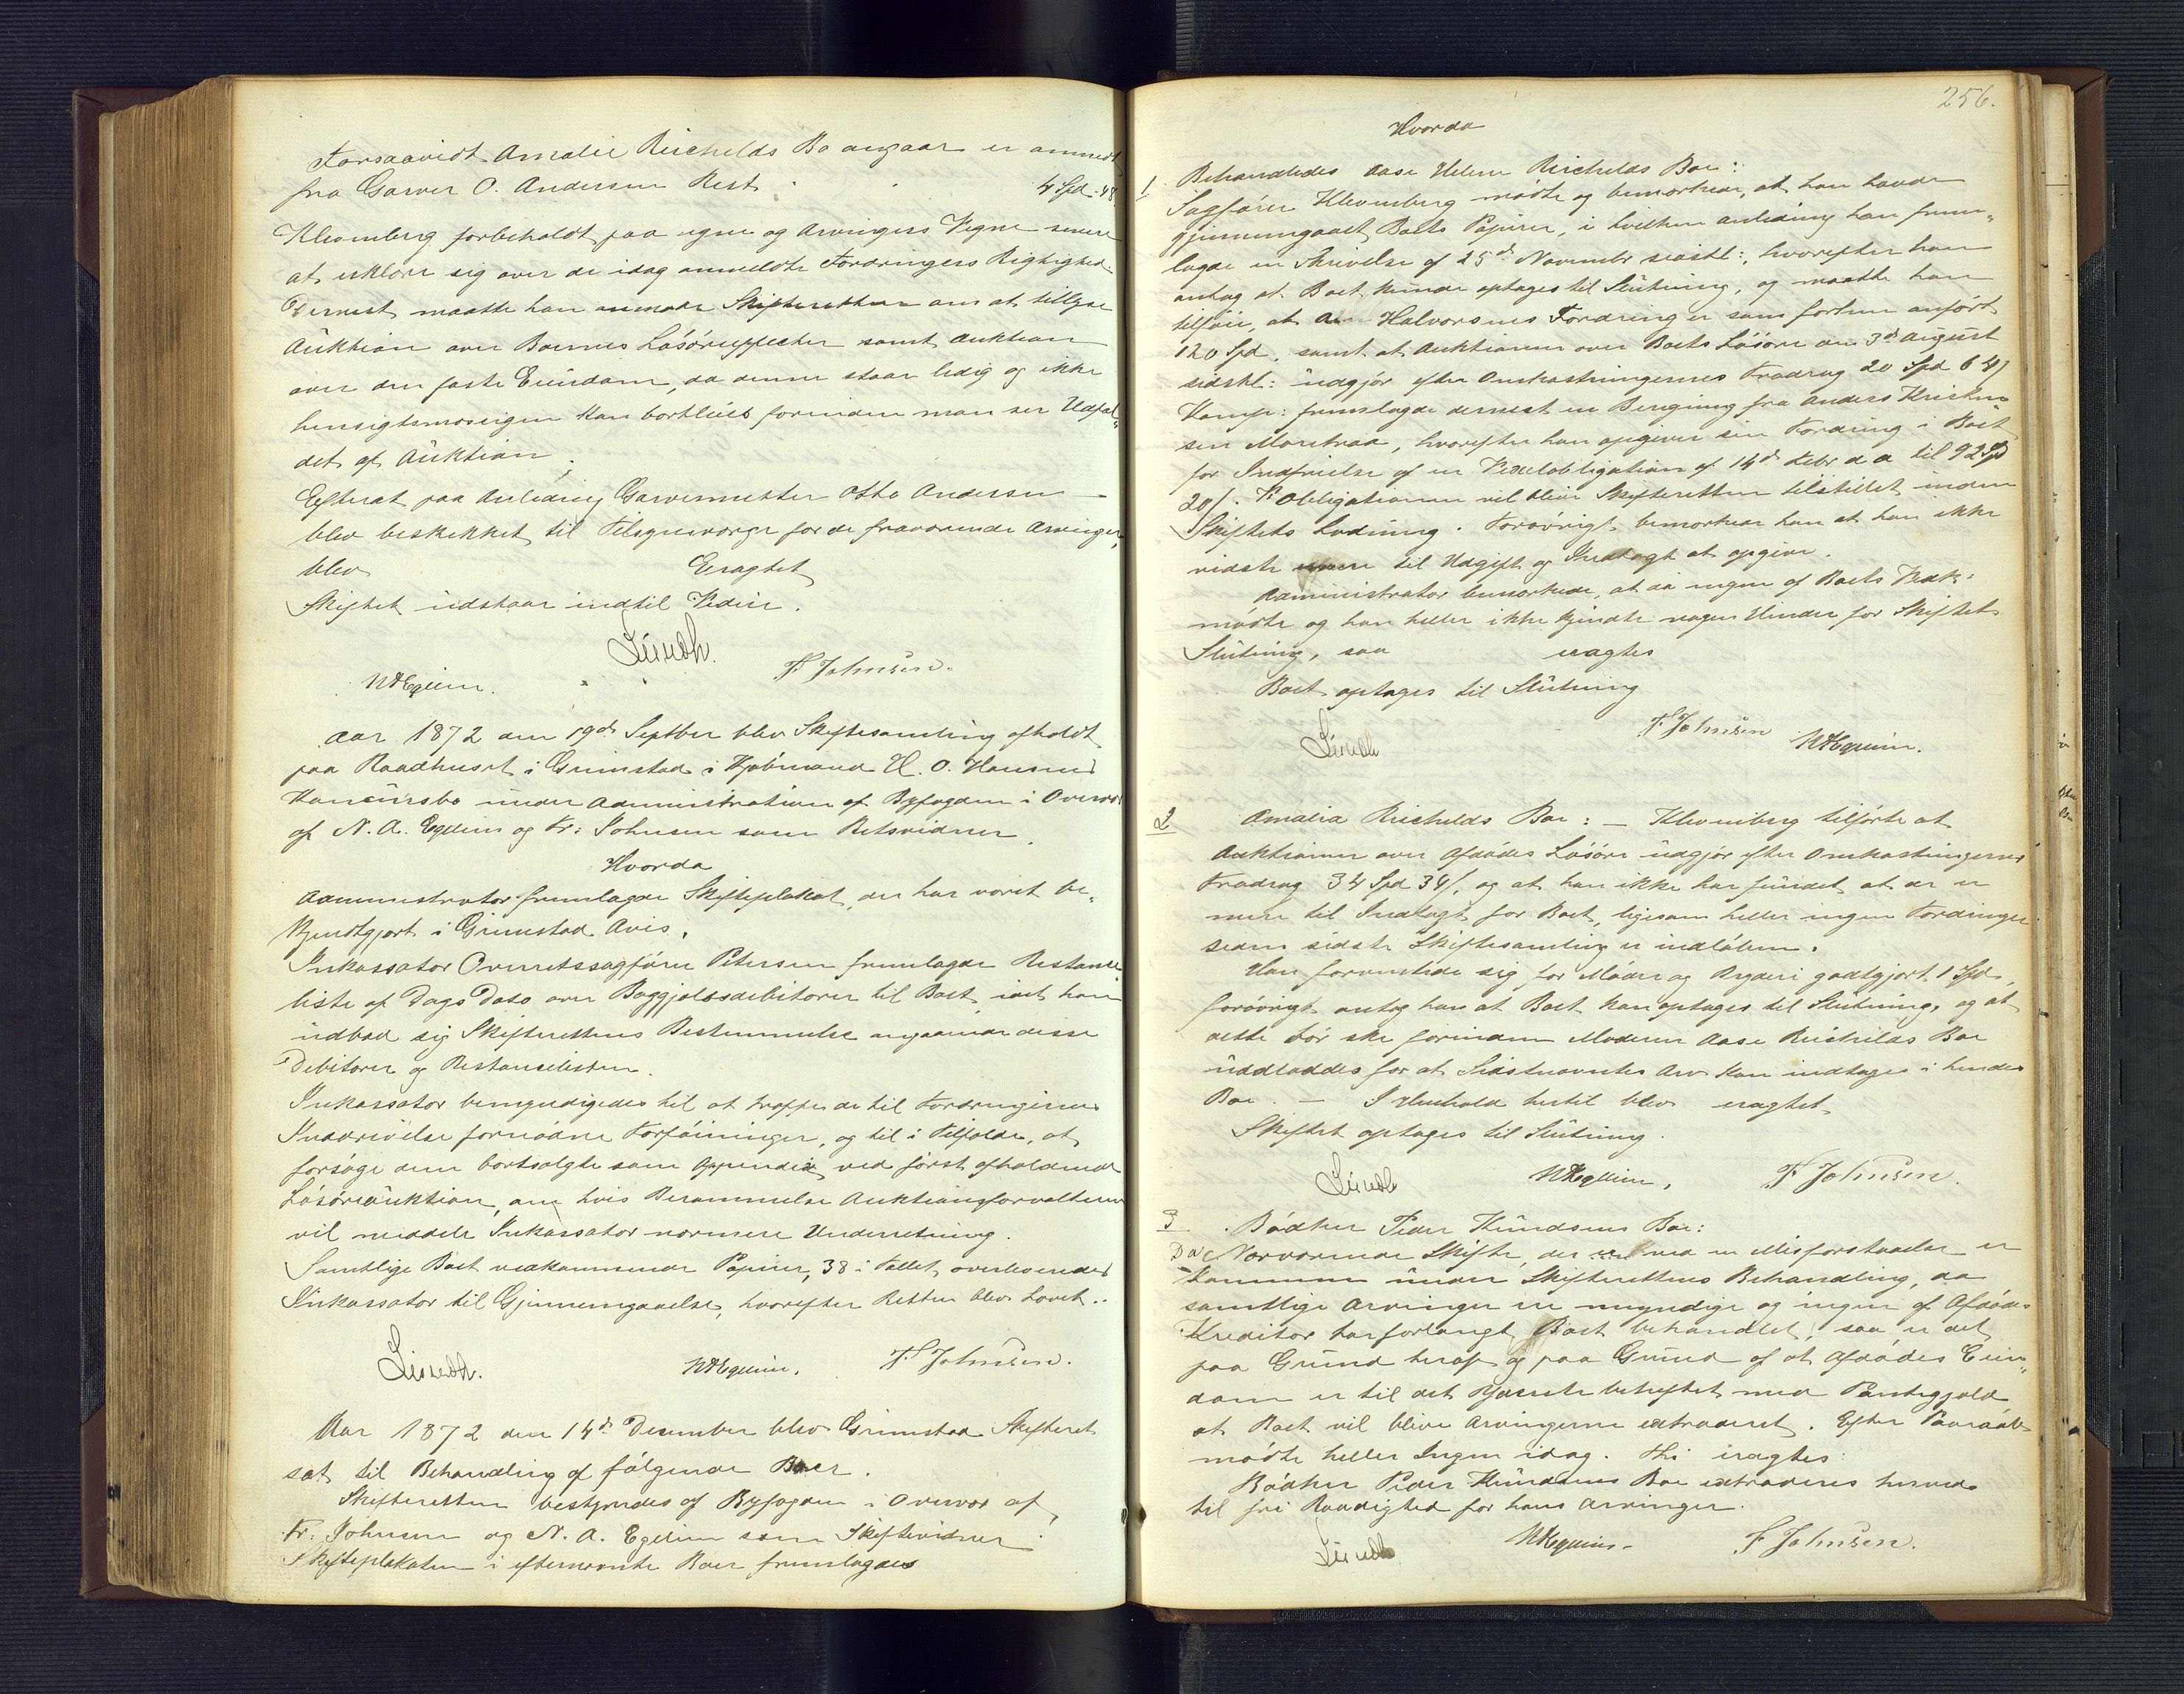 Forsaavidt Amalie Reichelds Bo angaar er anmeldt
fra Garver O. Andersen Rest 4 Spd 48
Klevenberg forbeholdt paa egne og Arvingers Vegne senere
at erklære sig over de idag anmeldte Fordringers Rigtighed.
Dernæst maatte han anmode Skifteretten om at tillyse
Auktion over Boernes Løsøreeffecter samt Auktion
over den faste Eiendom, da denne staar ledig og ikke
hensigtsmæssigen kan bortleies forinden man ser Udfal„
det af Auktion.
Efterat paa Anledning Garvermester Otto Andersen
blev beskikket til Tilsynsværge for de fraværende Arvinger,
blev Eragtet
Skiftet udstaar indtil Videre.
Lundh.
NAEgelien. F. Johnsen.
Aar 1872 den 19de Septber blev Skiftesamling afholdt
paa Raadhuset i Grimstad i Kjøbmand H. O. Hansens
Konkursbo under Administration af Byfogden i Overvær
af N. A. Egeliens og Fr: Johnsen som Retsvidner.
Hvorda
Administrator fremlagde Skifteplakat, der har været be„
kjendtgjort i Grimstad Avis.
Inkassator Overretssagfører Petersen fremlagde Restance
liste af Dags Dato over Boggjældsdebitorer til Boet, idet han
udbad sig Skifterettens Bestemmelse angaaende disse
Debitorer og Restancelisten.
Inkassator bemyndigedes til at træffe de til Fordringernes
Inddrivelse fornødne Forføininger, og til i Tilfælde, at
forsøge dem bortsolgte som Appendix ved først afholdende
Løsøreauktion, om hvis Berammelse Auktionsforvalteren
vil meddele Inkassator nærmere Underretning.
Samtlige Boet vedkommende Papirer, 38 i Tallet, overleveredes
Inkassator til Gjennemgaaelse, hvorefter Retten blev hævet.
Lundh. NAEgelien. F. Johnsen.
Aar 1872 den 14de December blev Grimstad Skifteret
sat til Behandling af følgende Boer.
Skifteretten bestyredes af Byfogden i Overvær af
Fr. Johnsen og N. A. Egelien som Skiftevidner.
Skifteplakaten i efternævnte Boer fremlagdes
256.
Hvorda
1 Behandledes Aase Helene Reichelds Boe:
Sagfører Klevenberg mødte og bemærkede, at han havde
gjennemgaaet Boets Papirer, i hvilken anledning han frem„
lagde en Skrivelse af 25de November sidstl:, hvorefter han
antog at Boet kunde optages til Slutning, og maatte han
tilføie, at Halvorsens Fordring er som forhen anført
120 Spd. samt at Auktionen over Boets Løsøre den 3de August
sidstl: udgjør efter Omkostningernes Fradrag 20 Spd 64/
Komp: fremlagde dernæst en Beregning fra Anders Kristen
sen Moretraa, hvorefter han opgiver sin Fordring i Boet
for Indfrielse af en Vexelobligation af 14de Febr d a til 92 Spd
20/. Obligationen vil blive Skifteretten tilstillet inden
Skiftets Slutning. Forøvrigt bemærkede han at han ikke
vidste mere til Udgift og Indtægt at opgive.
Administrator bemærkede, at da ingen af Boets Vedk:
mødte og han heller ikke kjendte nogen Hinder for Skiftets
Slutning, saa eragtes
Boet optages til Slutning
Lundh F. Johnsen NAEgelien.
2 Amalia Reichelds Boe: — Klevenberg tilførte at
Auktionen over Afdødes Løsøre udgjør efter Omkostningernes
Fradrag 34 Spd 34/, og at han ikke har fundet at der er
mere til Indtægt for Boet, ligesom heller ingen Fordringer
siden sidste Skiftesamling er indløbne.
Han forventede sig for Møder og Bryderi godtgjort 1 Spd,
forøvrigt antog han at Boet kan optages til Slutning, og at
dette bør ske forinden Moderen Aase Reichelds Boe
uddloddes for at Sidstnævntes Arv kan indtages i hendes
Boe. — I Henhold hertil blev eragtet
Skiftet optages til Slutning.
Lundh NAEgelien. F. Johnsen.
3 Bødker Peder Knudsens Boe:
Da Nærværende Skifte, der ved en Misforstaaelse er
kommen under Skifterettens Behandling, da
samtlige Arvinger ere myndige og ingen af Afdødes
Kreditor har forlangt Boet behandlet, saa er det
paa Grund heraf og paa Grund af at Afdødes Eien„
dom er til det yderste behæftet med Pantegjæld
at Boet vil blive Arvingerne extraderet. Efter Paaraab
mødte heller Ingen idag. Thi eragtes:
Bødker Peder Knudsens Boe extraderes herved
til fri Raadighed for hans Arvinger.
Lundh NAEgelien. F. Johnsen.